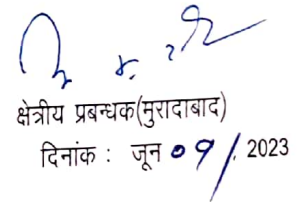 क्षेत्रीय प्रबन्धक(मुरादाबाद)
दिनांक : जून 09/. 2023